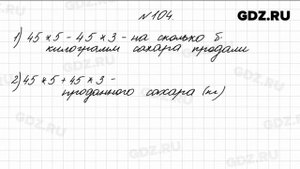 №104
GDZ.RU
1) 45 * 5 - 45 * 3 - на сколько б.
килограмм сахара продали
2) 45 * 5 + 45 * 3 -
проданного сахара (кг)
GDZ.RU